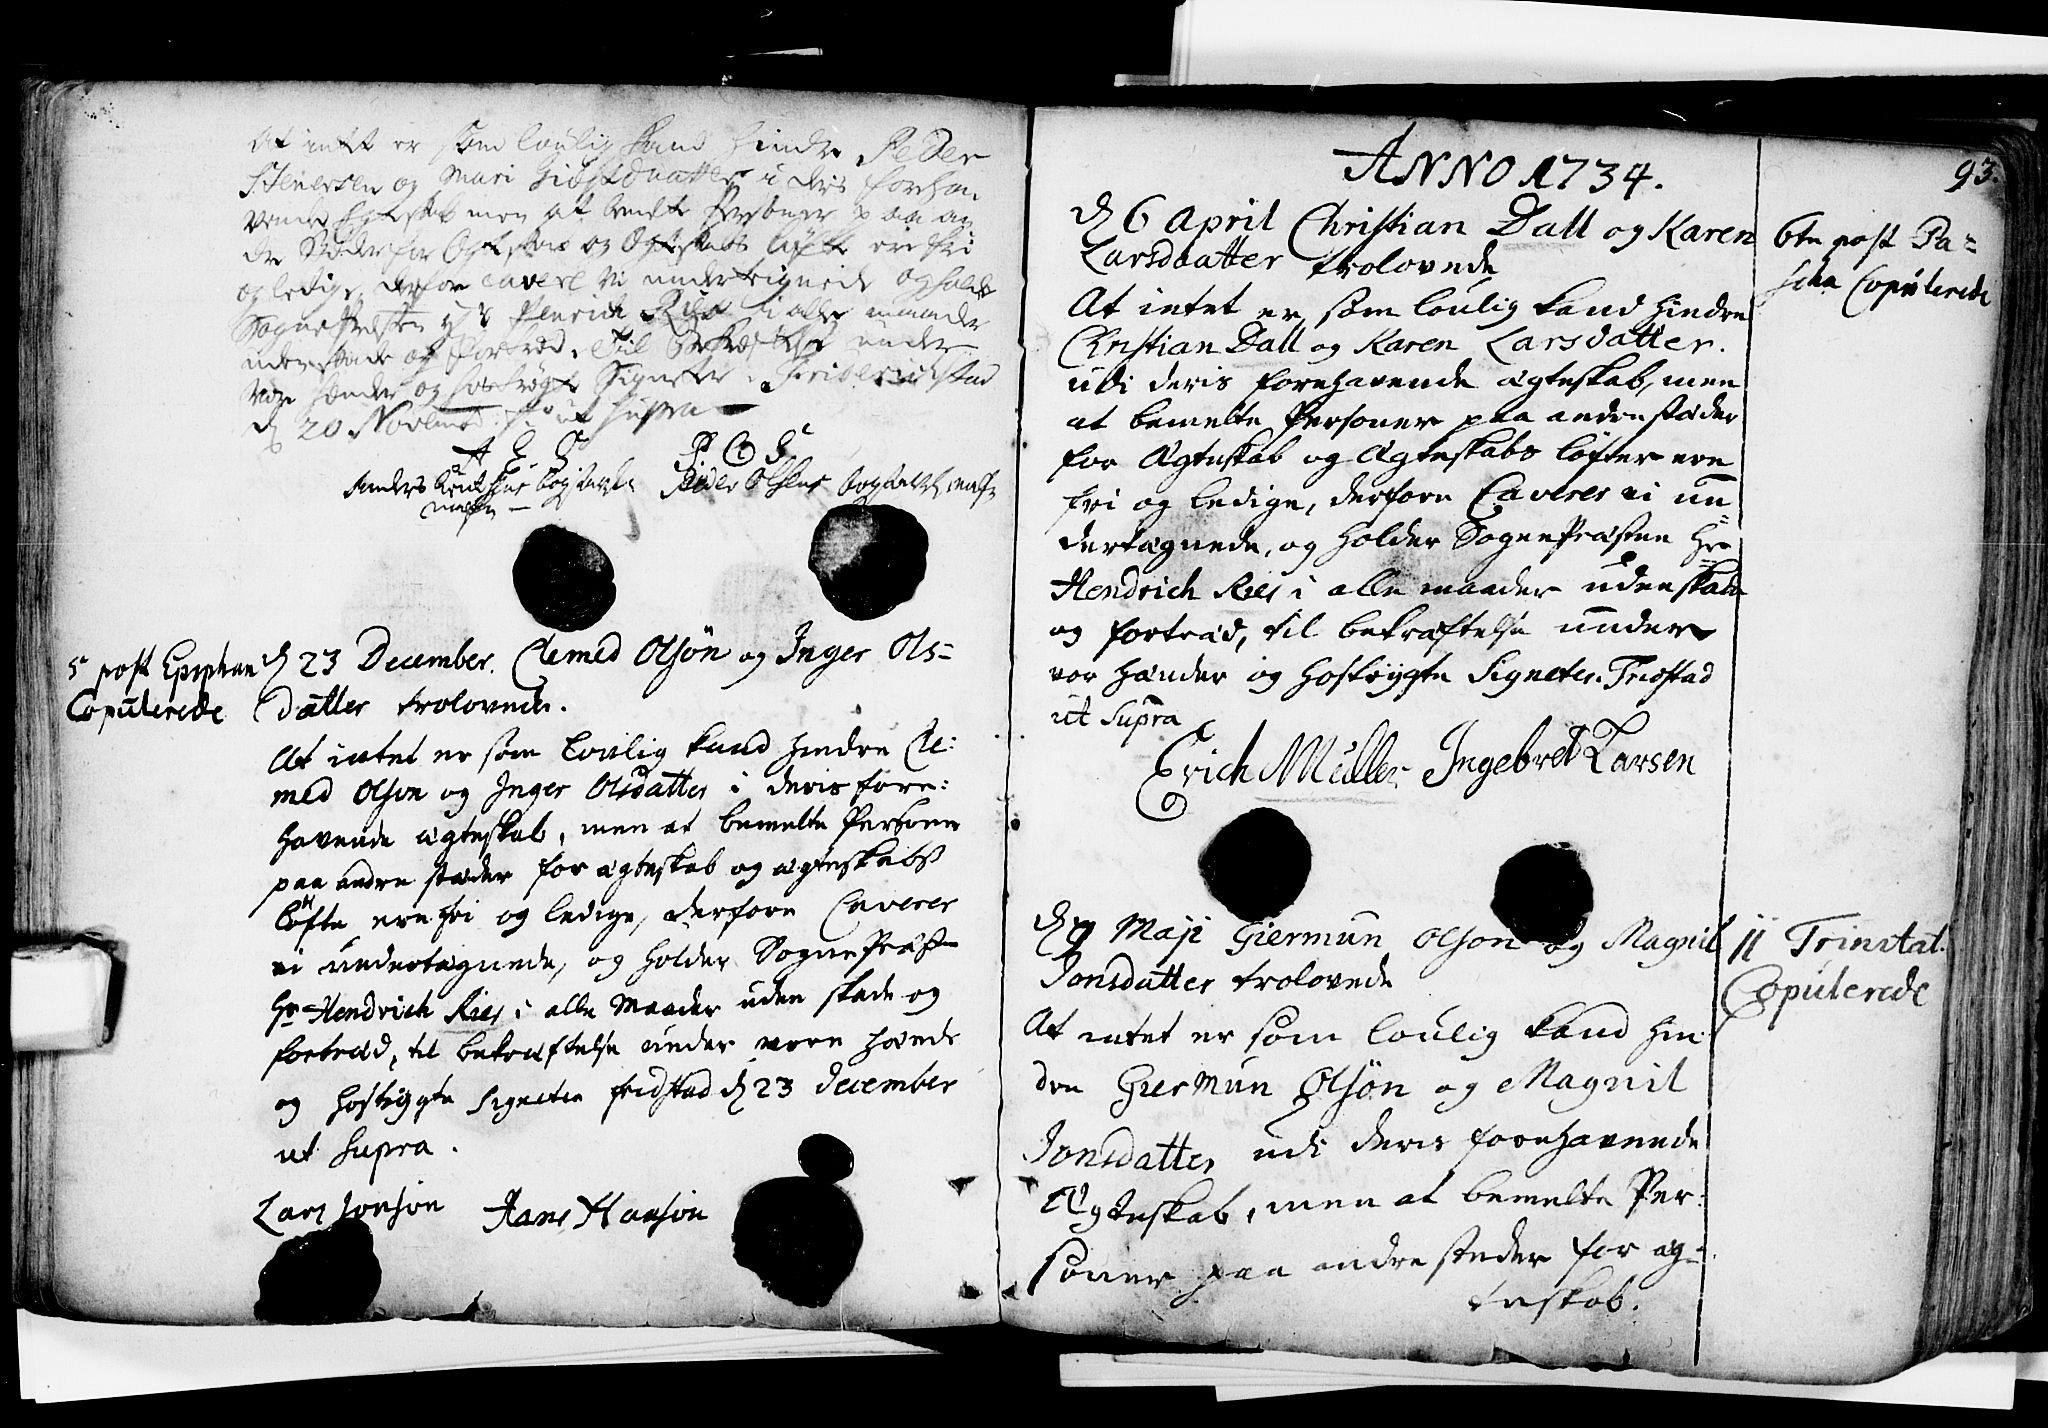 At intet er som loulig kand hindre Peder
Stenersen og Mari Giøstdaatter i deris foreha
vende Egteskab men at bemte Personer paa an
dre Stæder for Egteskab og Egteskabs løfte ere fri
og ledige, derfore cavere vi undertegnede og holde
Sogne Præsten Hr Henrich Ries i alle maader
uden skade og fortred. Til Bekræftelse under
vore hænder og hostrøgte Signeter. Friderichstad
d 20 Novembr. ut supra
A E S P O S
Anders bogstaver Peder Olsens bogstaver
5 post Epiphan
Copulerede
d 23 December. Clemed Olsön og Inger Ols=
datter trolovede.
At intet er som lovlig kand hindre Cle:
med Olson og Inger Olsdatter i deris fore:
havende ægteskab, men at bemelte Persone
paa andre stæder for ægteskab og ægteskabs
løfte ere fri og ledige, derfore Caverer
vi undertægnede, og holder Sogne Præst
Hr Hendrich Ries i alle Maader uden skade og
fortræd, til bekræftelse under vore hænde
og hostrygte Signeter fridstad d 23 December
ut supra.
Lars Jonson Hans Hanson
93.
ANNO 1734.
d 6 April Christian Dall og Karen
Larsdaatter trolovede
6te post Pa=
scha Copulerede
At intet er som loulig kand hindre
Christian Dall og Karen Larsdatter.
udi deris forehavende ægteskab, men
at bemelte Personer paa andre stæder
for Ægteskab og Ægteskabs løfter ere
fri og ledige, derfore Caverer vi un
dertægnede, og holder Sogne Præsten Hr
Hendrich Ries i alle maader uden skade
og fortræd, til bekræftelse under
vor hænder og hostrygte Signeter. Fridstad
ut Supra
Erich Müller Ingebret Larsen
d 9 Maji Giermun Olson og Magnil
Jonsdatter trolovede
11 Trinitat.
Copulerede
At intet er som loulig kand hin
dre Giermun Olsön og Magnil
Jonsdatter udi deris forehavende
Ægteskab, men at bemelte Per:
soner paa andre steder for æg=
teskab.